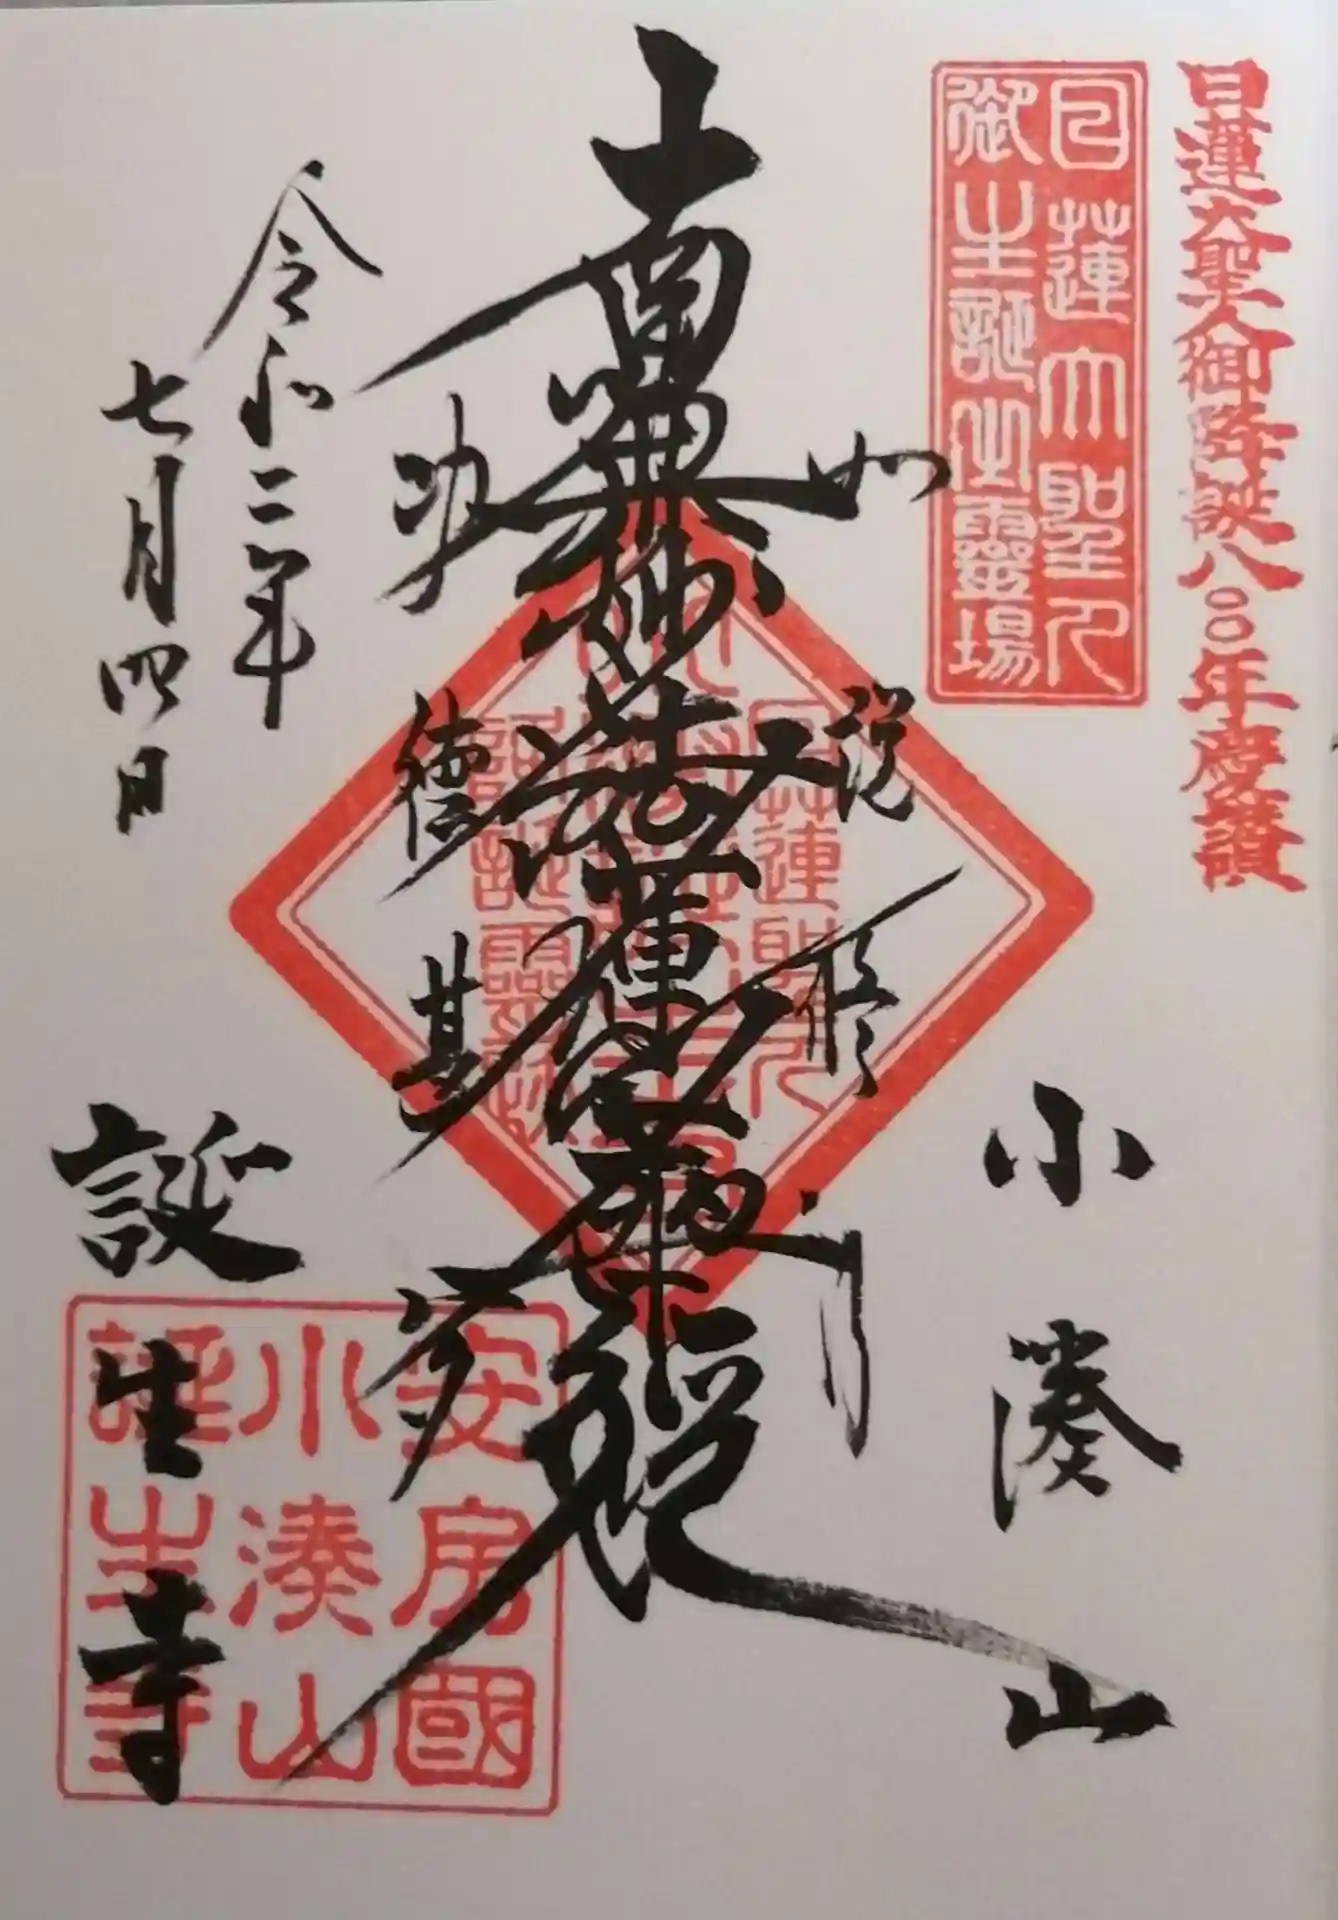 日蓮大聖人御降誕八〇〇年慶讃
日蓮大聖人
御生誕之霊場
小湊山
如説修行
南無妙法蓮華経
功徳甚多
令和二年
七月四日
誕生寺
日蓮聖人
誕霊
安房國
小湊山
誕生寺